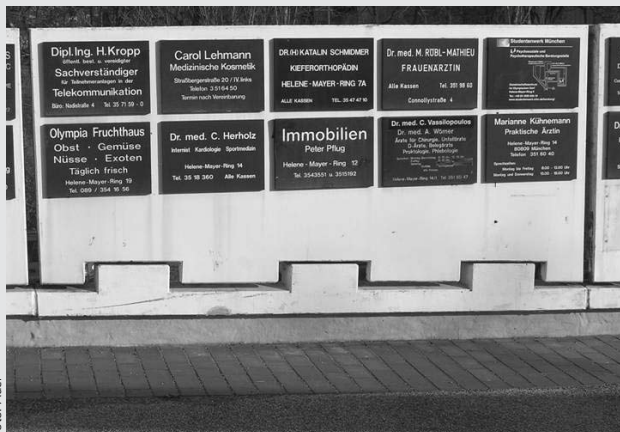 Dipl.Ing. H.Kropp
öffentl. best. u. vereidigter
Sachverständiger
für Teilnehmeranlagen in der
Telekommunikation
Büro: Nadistraße 4 Tel 35 71 59 - 0
Carol Lehmann
Medizinische Kosmetik
Straßbergerstraße 20 / IV. links
Telefon 3516450
Termin nach Vereinbarung
DR.(H) KATALIN SCHMIDMER
KIEFERORTHOPÄDIN
HELENE-MAYER-RING 7A
ALLE KASSEN TEL. 30 47 47 10
Dr. med. M. RÖBL-MATHIEU
FRAUENARZTIN
Alle Kassen Tel. 351 98 60
Connollystraße 4
Studentenwerk München
Olympia Fruchthaus
Obst · Gemüse
Nüsse · Exoten
Täglich frisch
Helene-Mayer-Ring 19
Tel. 089 / 354 16 56
Dr. med. C. Herholz
Internist Kardiologie Sportmedizin
Helene-Mayer-Ring 14
Tel. 35 18 360 Alle Kassen
Immobilien
Peter Pflug
Helene - Mayer - Ring 12
Tel. 3543551 u. 3515192
Dr. med. C. Vassilopoulos
Dr. med. A. Wörner
Ärzte für Chirurgie, Unfallärzte
D-Ärzte, Belegärzte
Proktologie, Phlebologie
Helene-Mayer-Ring 14/1
Marianne Kühnemann
Praktische Ärztin
Helene-Mayer-Ring 14
80809 München
Telefon 351 60 40